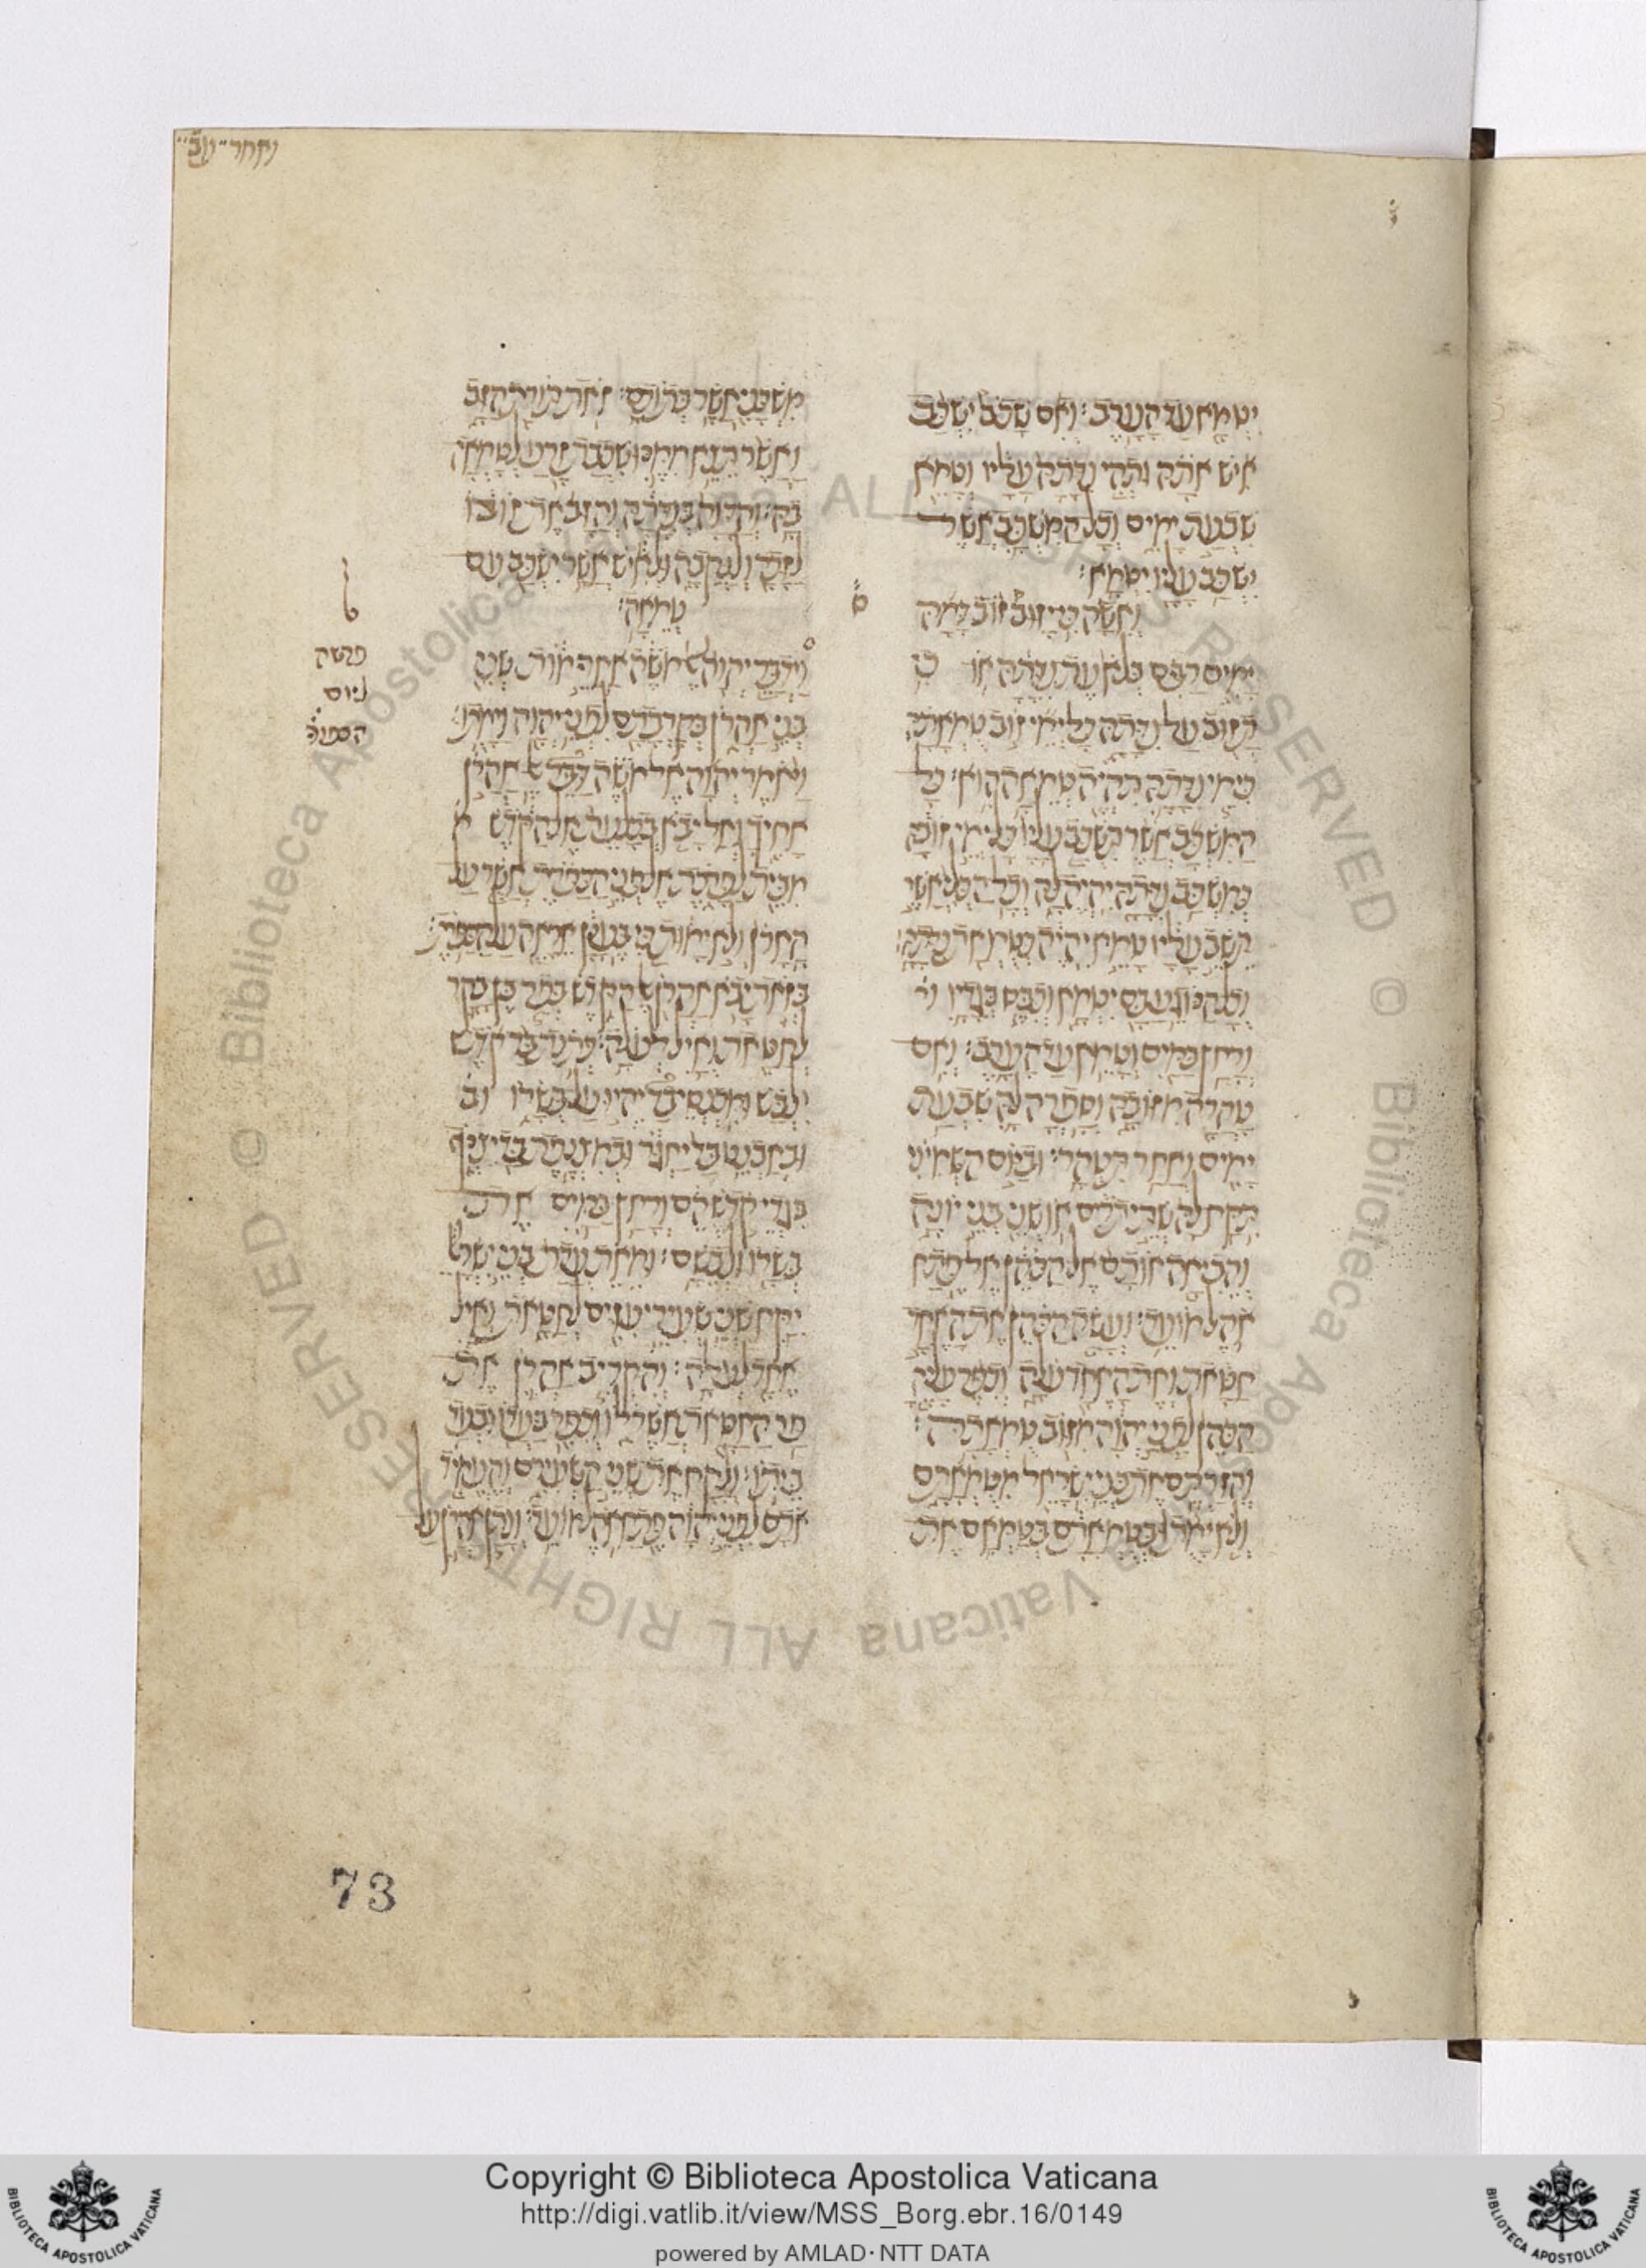 ואחר ״ עב״
יטמא עד הערב׃ ואם שכב ישכב
איש אתה ותהי נדתה עליו וטמא
שבעת ימים וכל המשכב אשר
ישכב עליו יטמא׃
ס
ואשה כי יזוב זוב דמה
ימים רבים בלא עת נדתה או כי
תזוב על נדתה כל ימי זוב טמאתה
כימי נדתה תהיה טמאה הוא׃ כל
המשכב אשר תשכב עליו כל ימי זובה
כמשכב נדתה יהיה לה וכל הכלי אשר
תשב עליו טמא יהיה כטמאת נדתה׃
וכל הנוגע בם יטמא וכבס בגדיו ור
ורחץ במים וטמא עד הערב׃ ואם
טהרה מזובה וספרה לה שבעת
ימים ואחר תטהר׃ וביום השמיני
תקח לה שתי תרים או שני בני יונה
והביאה אותם אל הכהן אל פתח
אהל מועד׃ ועשה הכהן את האחד
חטאת ואת האחד עלה וכפר עליה
הכהן לפני יהוה מזוב טמאתה׃
והזרתם את בני ישראל מטמאתם
ולא ימתו בטמאתם בטמאם את
משכני אשר בתוכם׃ זאת תורת הזב
ואשר תצא ממנו שכבת זרע לטמאה
בה׃ והדוה בנדתה והזב את זובו
לזכר ולנקבה ולאיש אשר ישכב עם
טמאה׃
פרשה
ליום
הכפו׳
וידבר יהוה אל משה אחרי מות שני
בני אהרן בקרבתם לפני יהוה וימתו׃
ויאמר יהוה אל משה דבר אל אהרן
אחיך ואל יבא בכל עת אל הקדש מ
מבית לפרכת אל פני הכפרת אשר על
הארן ולא ימות כי בענן אראה על הכפרת׃
בזאת יבא אהרן אל הקדש בפר בן בקר
לחטאת ואיל לעלה׃ כתנת בד קדש
ילבש ומכנסי בד יהיו על בשרו וב
ובאבנט בד יחגר ובמצנפת בד יצנף
בגדי קדש הם ורחץ במים את
בשרו ולבשם׃ ומאת עדת בני ישראל
יקח שני שעירי עזים לחטאת ואיל
אחד לעלה׃ והקריב אהרן את
פר החטאת אשר לו וכפר בעדו ובעד
ביתו׃ ולקח את שני השעירם והעמיד
אתם לפני יהוה פתח אהל מועד׃ ונתן אהרן על
73
Copyright © Biblioteca Apostolica Vaticana
http://digi.vatlib.it/view/MSS_Borg.ebr.16/0149
powered by AMLAD·NTT DATA